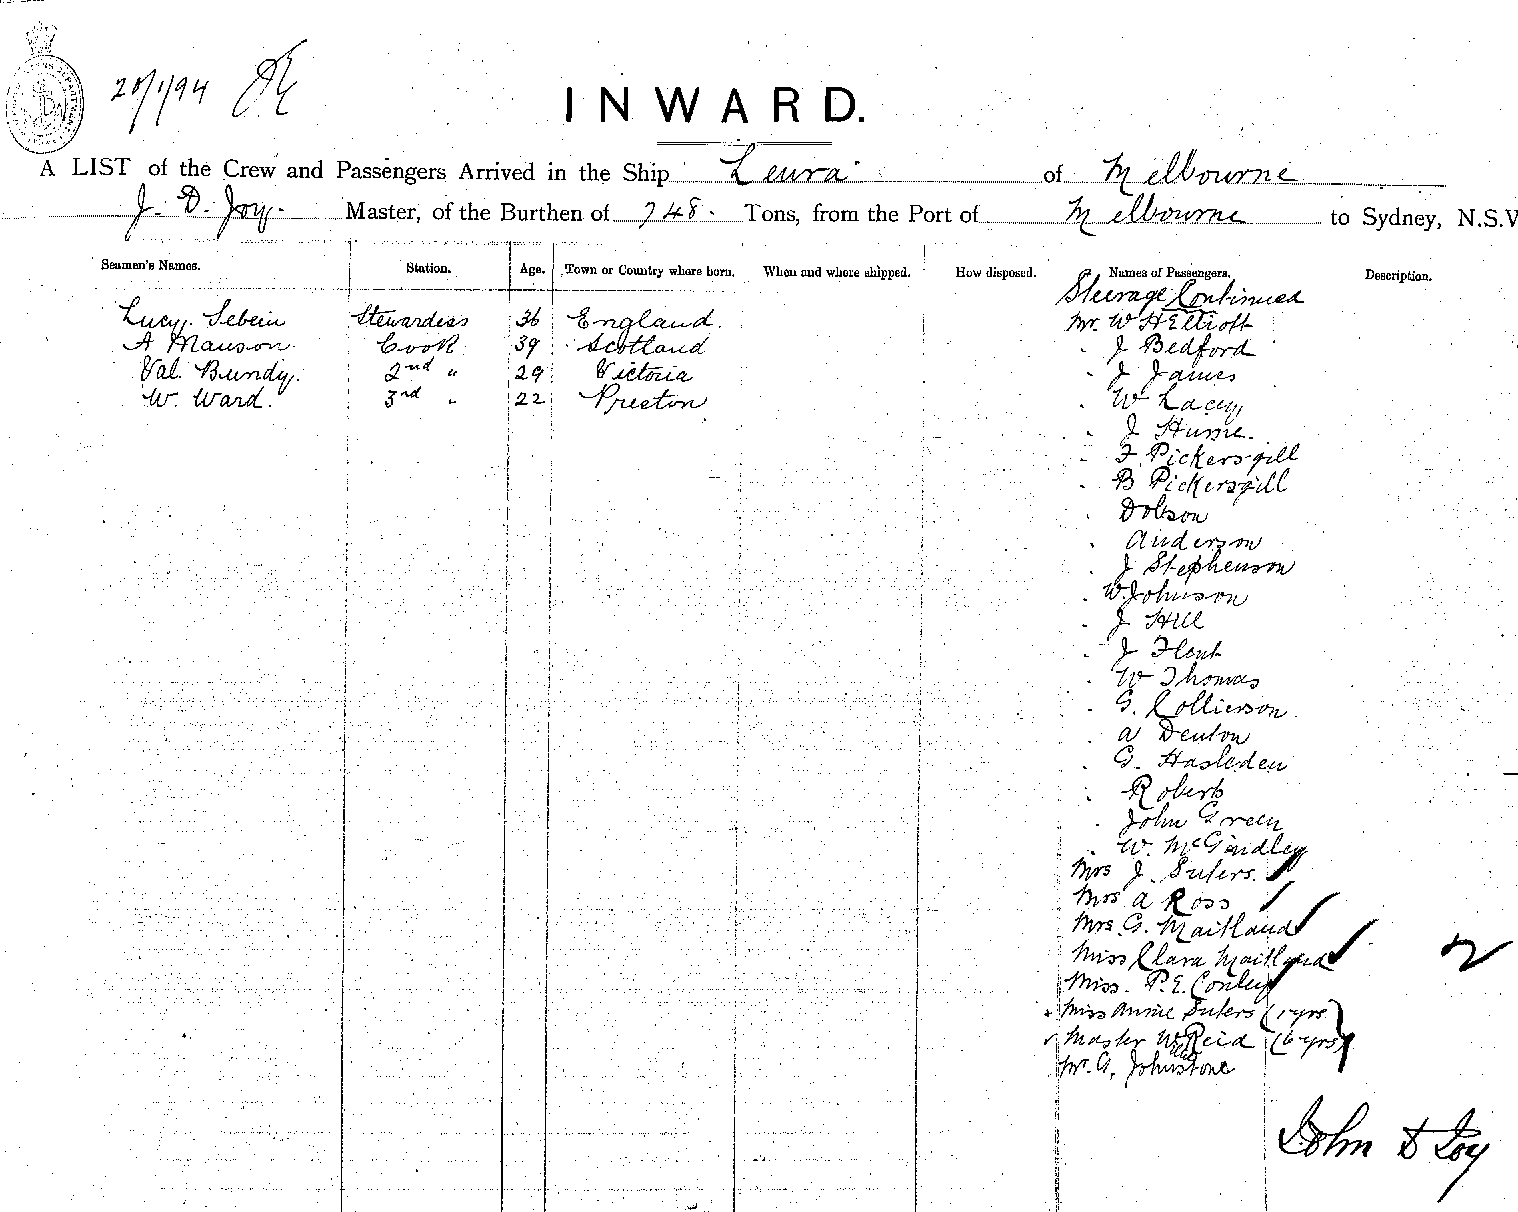 20/1/94
INWARD.
A LIST of the Crew and Passengers Arrived in the Ship Leura of Melbourne
J. D. Joy. Master, of the Burthen of 748. Tons, from the Port of Melbourne to Sydney, N.S.W
Seamen's Names. Station. Age. Town or Country where born. When and where shipped. How disposed. Names of Passengers. Description.
Steerage Continued
Lucy. Stewardess 36 England. Mr. W H Elliott
A Manson. Cook 39 Scotland " J Bedford
Val. Bundy. 2nd " 29 Victoria " J James
W. Ward. 3rd " 22 Preston " W Lacey
" J Hume.
" F. Pickersgill
" B Pickersgill
" Dobson
" Anderson
" J Stephenson
" W. Johnson
" J Hill
" J
" W Thomas
" G. Collierson
" A Denton
" G. Hasleden
" Roberts
" John Green
" W.
Mrs J. Suters.
Mrs A Ross
Mrs. G. Maitland
Miss Clara Maitland
Miss. P. E. Conley
Miss Annie Suters (1 yrs)
Master W Reid (6 yrs)
Mr. G. Johnstone
John D Joy